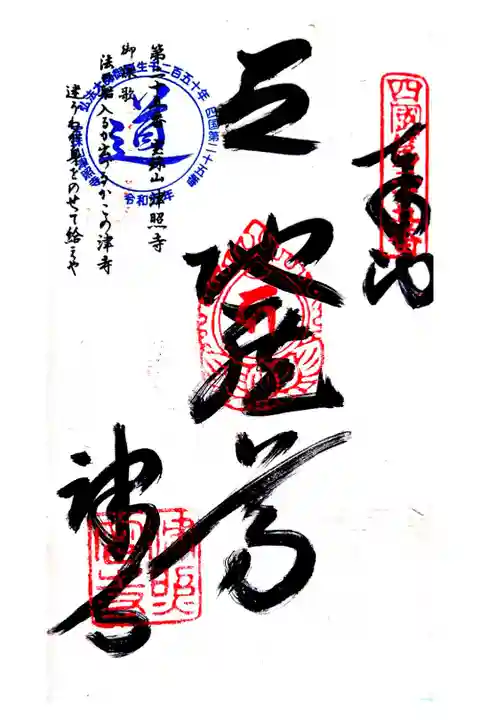 四國第二十五番
奉納
地蔵尊
津寺
第二十五番 宝珠山 津照寺
御詠歌
法の船入るか出づるかこの津寺
迷ふわが身をのせて給へや
弘法大師御誕生千二百五十年 四国第二十五番
道